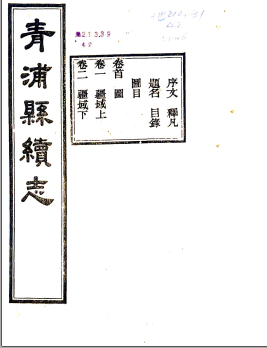 213.39
42
序文 釋凡
題名 目錄
圖目
卷首 圖
卷一 疆域上
卷二 疆域下
青浦縣續志